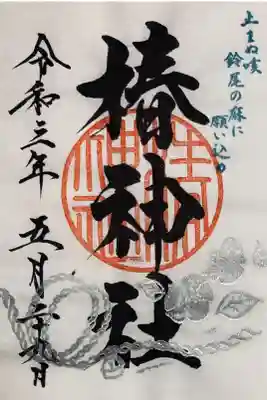 止まぬ咳
鈴尾の麻に
願い込め
椿神社
令和三年 五月二十日